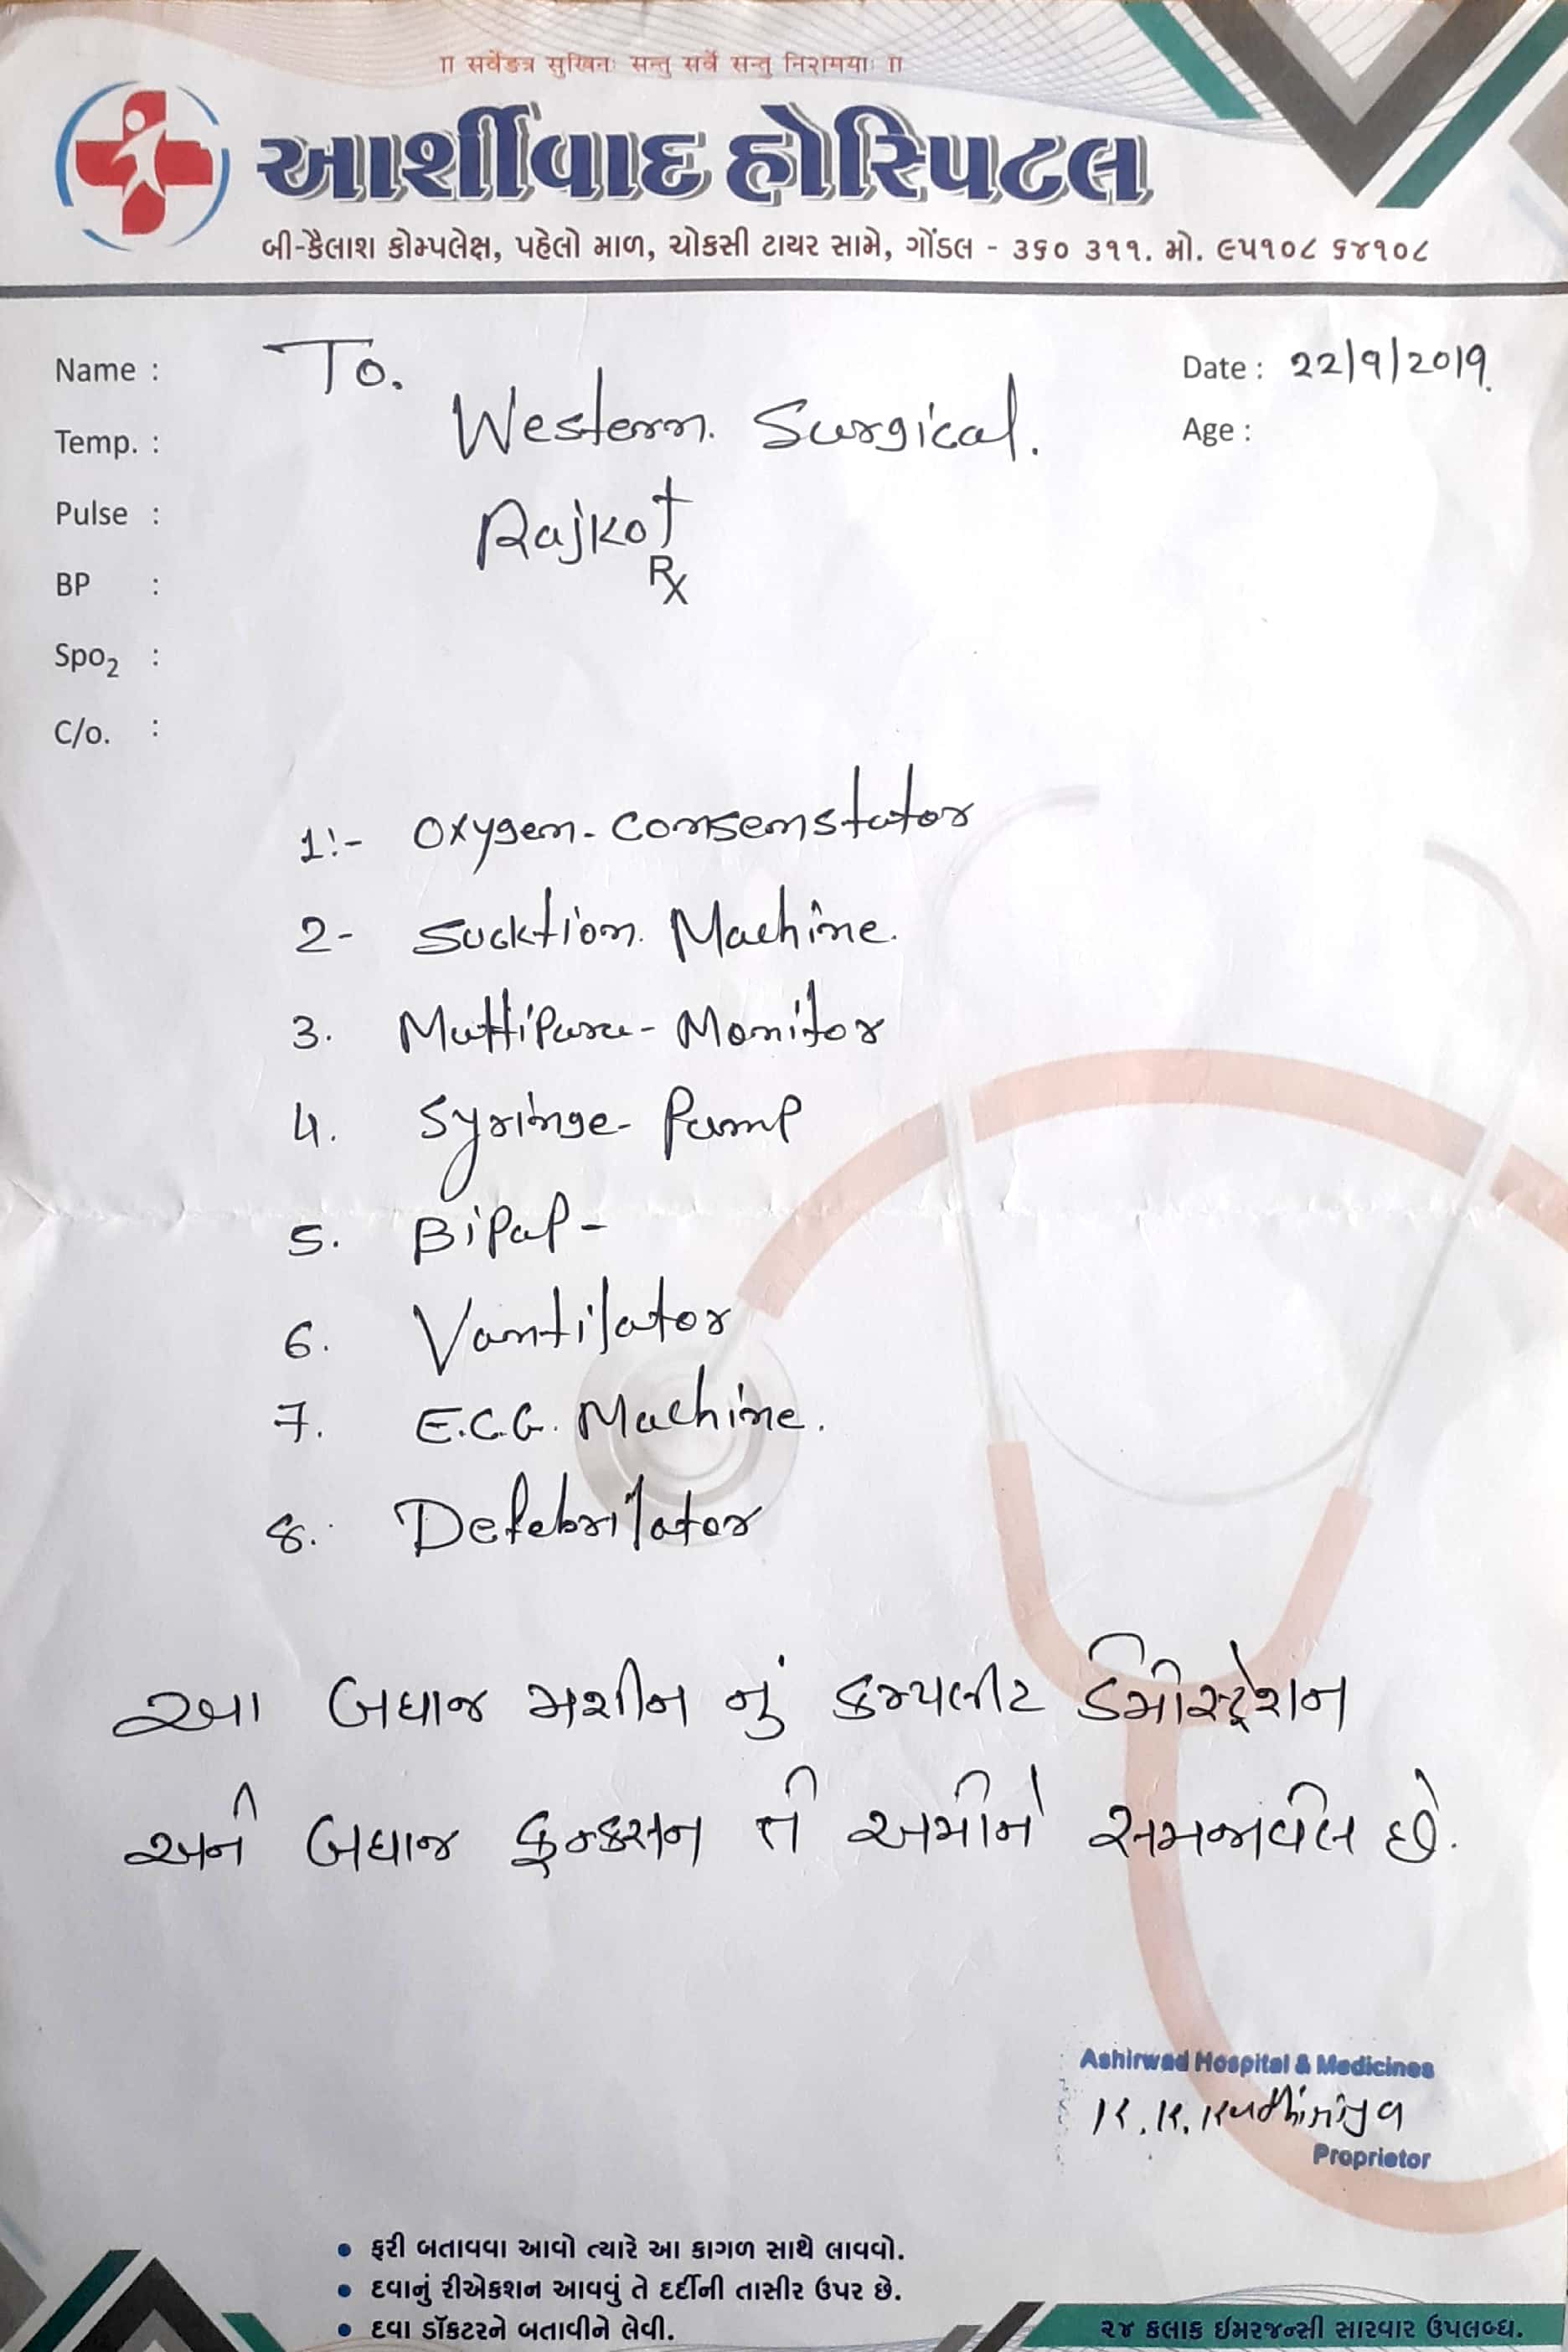 ॥ સર્વેડત્ર સુખિનઃ સન્તુ સર્વે સન્તુ નિરામયાઃ ॥
આર્શીવાદ હોસ્પિટલ
બી-કૈલાશ કોમ્પલેક્ષ, પહેલો માળ, ચોકસી ટાયર સામે, ગોંડલ - ૩૬૦ ૩૧૧. મો. ૯૫૧૦૮ ૬૪૧૦૮
Name : To. Date : 22/9/2019
Western. Surgical.
Temp. : Age :
Pulse : Rajkot
Rx
BP :
Spo2 :
C/o. :
1:- Oxygen-Consenstator
2- Sucktion Machine.
3. Multipara-Monitor
4. Syringe-Pump
5. BiPaP-
6. Vantilator
7. E.C.G. Machine.
8. Defebrilator
આ બધાજ મશીન નું કમ્પલીટ ડેમોસ્ટ્રેશન
અને બધાજ ફન્કસન તે અમોને સમજાવેલ છે.
Ashirwad Hospital & Medicines
K. K. Kudhiniya
Proprietor
• ફરી બતાવવા આવો ત્યારે આ કાગળ સાથે લાવવો.
• દવાનું રીએકશન આવવું તે દર્દીની તાસીર ઉપર છે.
• દવા ડૉકટરને બતાવીને લેવી.
૨૪ કલાક ઈમરજન્સી સારવાર ઉપલબ્ધ.